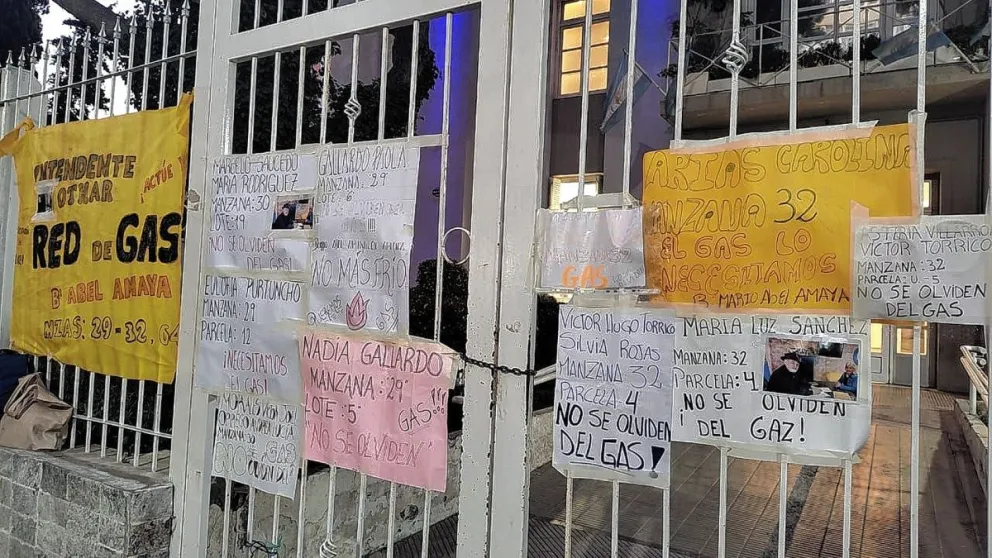 INTENDENTE
OTHAR
ACTÚE YA
RED DE GAS
Bº ABEL AMAYA
MZAS: 29-32, 64
MARCELO SAUCEDO
MARIA RODRIGUEZ
MANZANA: 30
LOTE: 19
NO SE OLVIDEN
DEL GAS!
GALLARDO PAOLA
MANZANA: 29
LOTE: 6
NO SE OLVIDEN
DEL GAS!!!
NO MÁS FRÍO
PURTUNCHO
MANZANA: 29
PARCELA: 12
¡NECESITAMOS
EL GAS!
MANZANA 30
NADIA GALLARDO
MANZANA: 29
LOTE: 5
GAS!!!
"NO SE OLVIDEN"
MANZANA: 32
GAS
ARIAS CAROLINA
MANZANA 32
EL GAS LO
NECESITAMOS
Bº MARIO ABEL AMAYA
VILLARRO
VICTOR TORRICO
MANZANA: 32
PARCELA: 5
NO SE OLVIDEN
DEL GAS
VICTOR HUGO TORRICO
SILVIA ROJAS
MANZANA 32
PARCELA 4
NO SE OLVIDEN
DEL GAS!
MARIA LUZ SANCHEZ
MANZANA: 32
PARCELA: 4
¡NO SE OLVIDEN
DEL GAZ!